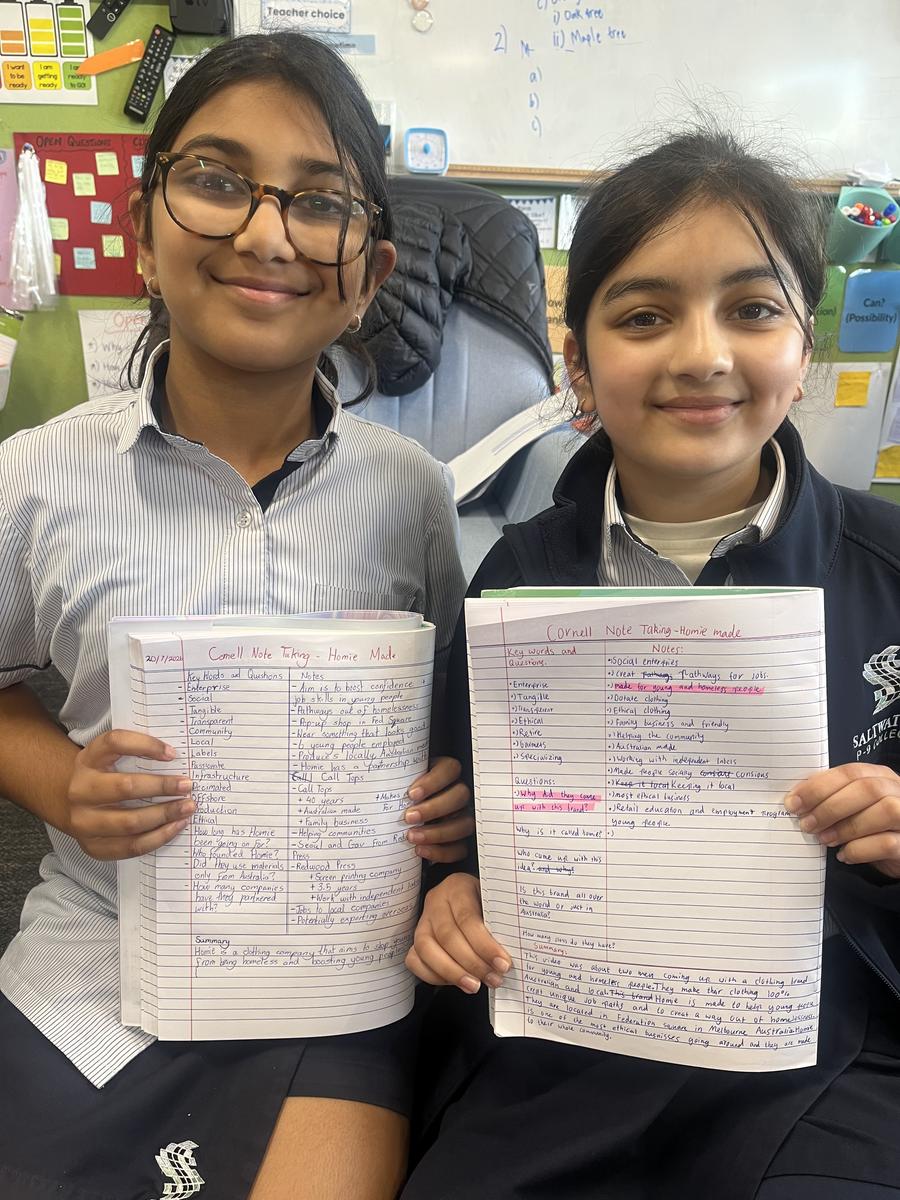 Teacher choice
i) Oak tree
2)
ii) Maple tree
a)
b)
c)
I want to be ready
I am getting ready
I am ready to GO!
OPEN QUESTIONS
Can?
(Possibility)
20/7/202
Cornell Note Taking - Homie Made
Key Words and Questions
- Enterprise
- Social
- Tangible
- Transparent
- Community
- Local
- Labels
- Passionate
- Infrastructure
- Decimated
- Offshore
- Production
- Ethical
- How long has Homie
been going on for?
- Who founded Homie?
- Did they use materials
only from Australia?
- How many companies
have they partnered
with?
Notes
- Aim is to boost confidence +
job skills in young people
- Pathways out of homelessness
- Pop-up shop in Fed Square
- Wear something that looks good
- 6 young people employed
- Produce's locally, Australian made
- Homie has a partnership with
Call Tops
- Call Tops
+ 40 years
+ Makes
+ Australian made
For Ho
+ Family business
- Helping communities
- Seoul and Gav From Red
Press
- Redwood Press
+ Screen printing company
+ 3.5 years
+ Work with independent labels
- Jobs to local companies
- Potentially exporting overseas
Summary
Homie is a clothing company that aims to stop young
from being homeless and boosting young people
Cornell Note Taking - Homie made
Key words and
Questions:
•) Enterprise
•) Tangible
•) Transparent
•) Ethical
•) Retire
•) business
•) Specializing
Questions:
•) Why did they come
up with this brand?
Why is it called homie?
who came up with this
idea? and why?
Is this brand all over
the world or just in
Australia?
How many stores do they have?
Notes:
•) Social enterpries
•) Creat Pathways Pathways for jobs.
•) made for young and homeless people
•) Donate clothing
•) Ethical clothing
•) Family business and friendly
•) Helping the community
•) Australian made
•) Working with independent labels
•) Made people socially consious
•) Keep it local Keeping it local
•) most ethical business
•) Retail education and employment program
young people.
•)
Summary:
This video was about two men coming up with a clothing brand
for young and homeless people. They make thier clothing 100%
Australian and local. This brand Homie is made to help young
creat unique job paths and to creat a way out of homelessness.
They are located in Federation square in Melbourne Australia. Homie
is one of the most ethical busnisses going around and they are made
to their whole community.
SALTWATER
P-9 COLLEGE